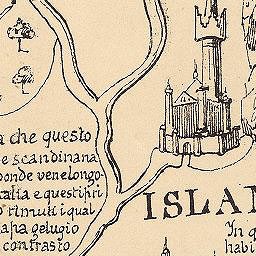 a che questo
e scandinana
ponde venelongo-
talia e questipri
o rimuti iqual
apa gelugio
contrasto
ISLAN
In q
habi